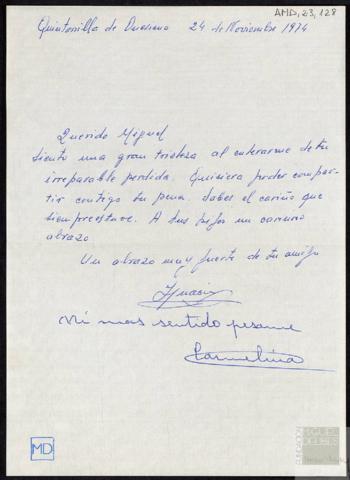 AMD, 23, 128
Quintanilla de Onésimo 24 de Noviembre 1974
Querido Miguel
Siento una gran tristeza al enterarme de tu
irreparable perdida. Quisiera poder compar-
tir contigo tu pena. Sabes el cariño que
siempre estuve. A tus hijos un
abrazo
Un abrazo muy fuerte de tu amigo
Ignacio
Mi mas sentido pesame
Carmelina
MD
FUNDACIÓN
MIGUEL
DELIBES